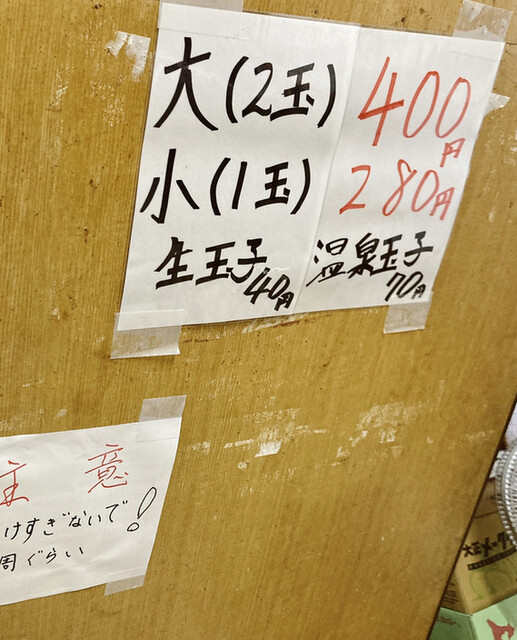 大(2玉) 400円
小(1玉) 280円
生玉子 40円 温泉玉子 70円
注意
けすぎないで!
周ぐらい